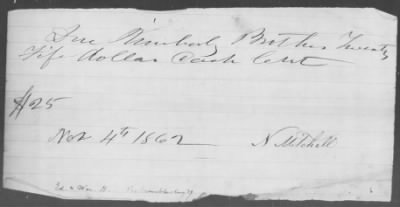 Due Kimberly Brothers Twenty
Fife dollar Cash Cent
$25
Nov 4th 1862 N Mitchell